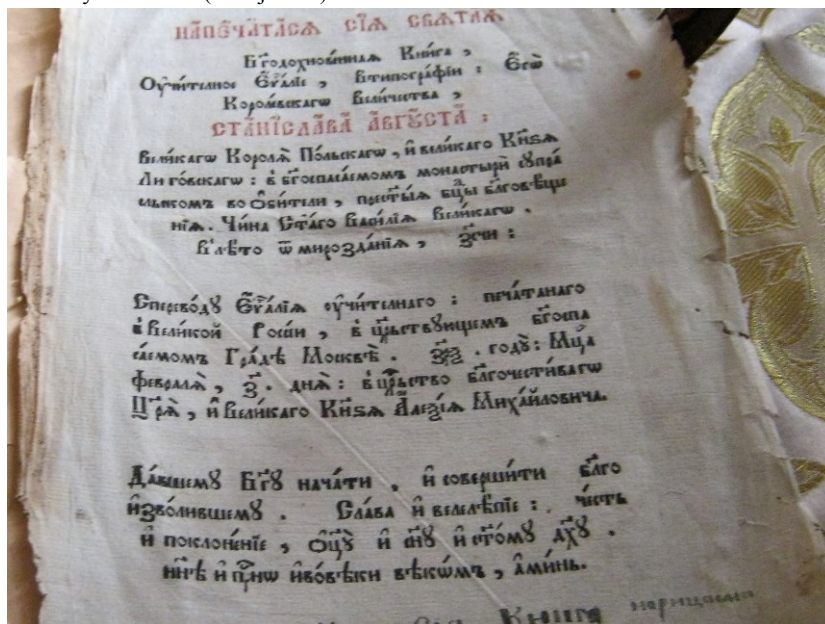 НАПЕЧАТАСѦ СЇѦ СВѦТАѦ
Бг҃одохнове́ннаѧ Кни́га ,
Оу҆чи́телное Е҆ѵⷢ҇алїе , Втипогра́фїи : Е҆гѡ̀
Короле́вскагѡ Вели́чества ,
СТАНИСЛА́ВА А҆́ВГꙊСТА :
Вели́кагѡ Королѧ̀ По́льскагѡ , и҆ вели́каго Кн҃ѕѧ
Лиго́вскагѡ : в бг҃оспаса́емомъ монастырѝ сꙋпра́
сльскомъ во ѻ҆би́тели , прест҃ы́ѧ бц҃ы бл҃говѣще
нїѧ . Чи́на Ст҃а́го Васи́лїѧ Вели́кагѡ .
В лѣ́то ѿ мирозда́нїѧ , ҂зсчи :
Сперево́дꙋ Е҆ѵⷢ҇а́лїѧ оу҆чи́телнаго : печа́танаго
в Вели́кой Росі́и , в цр҃ьствꙋющемъ бг҃оспа
са́емомъ Гра́дѣ Москвѣ̀ . ҂зр҃ѯ . годꙋ̀ : Мц҃а
февралѧ̀ , з҃ . днѧ̀ : в цр҃ьство бл҃гочести́вагѡ
Цр҃ѧ̀ , и҆ Вели́каго Кн҃ѕѧ А҆леѯі́ѧ Миха́йловича.
Да́вшемꙋ Бг҃ꙋ нача́ти , и҆ соверши́ти бл҃го
и҆зво́лившемꙋ . Сла́ва и҆ велелѣ́пїе : че́сть
и҆ поклоне́нїе , ѻ҆ц҃ꙋ̀ и҆ сн҃ꙋ и҆ ст҃о́мꙋ дх҃ꙋ .
нн҃ѣ и҆ пр҃нѡ и҆вовѣ́ки вѣкѡ́мъ , а҆ми́нь.
Книга нарицаема